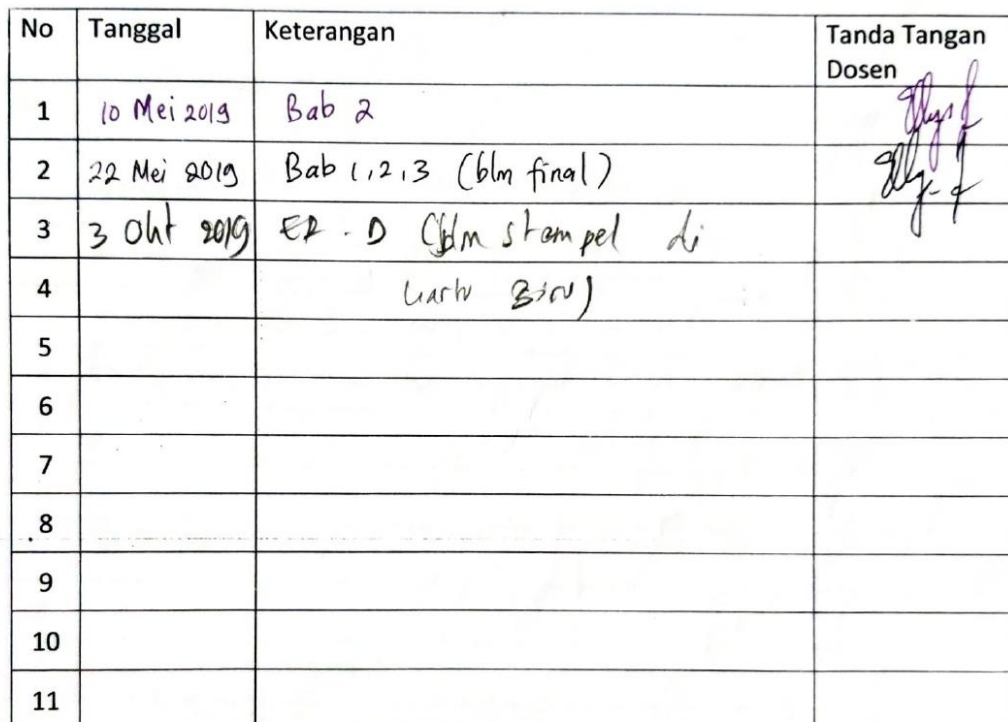 No Tanggal Keterangan Tanda Tangan
Dosen
1 10 Mei 2019 Bab 2
2 22 Mei 2019 Bab 1,2,3 (blm final)
3 3 Okt 2019 ER-D (blm stempel di
4 kartu Biru)
5
6
7
8
9
10
11